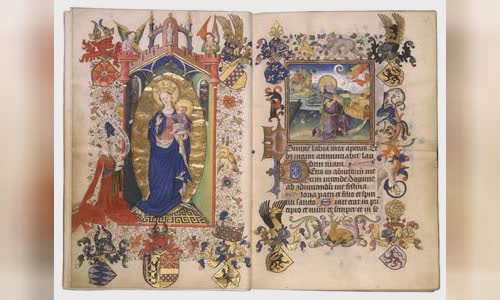 Domine labia mea aperies. Et
os meum annunciabit lau
dem tuam.
Deus in adiutorium me
um intende. Domine
ad adiuvandum me festina.
loria patri et filio et spiri
tui sancto. Sicut erat in prin
cipio et nunc et semper et in se